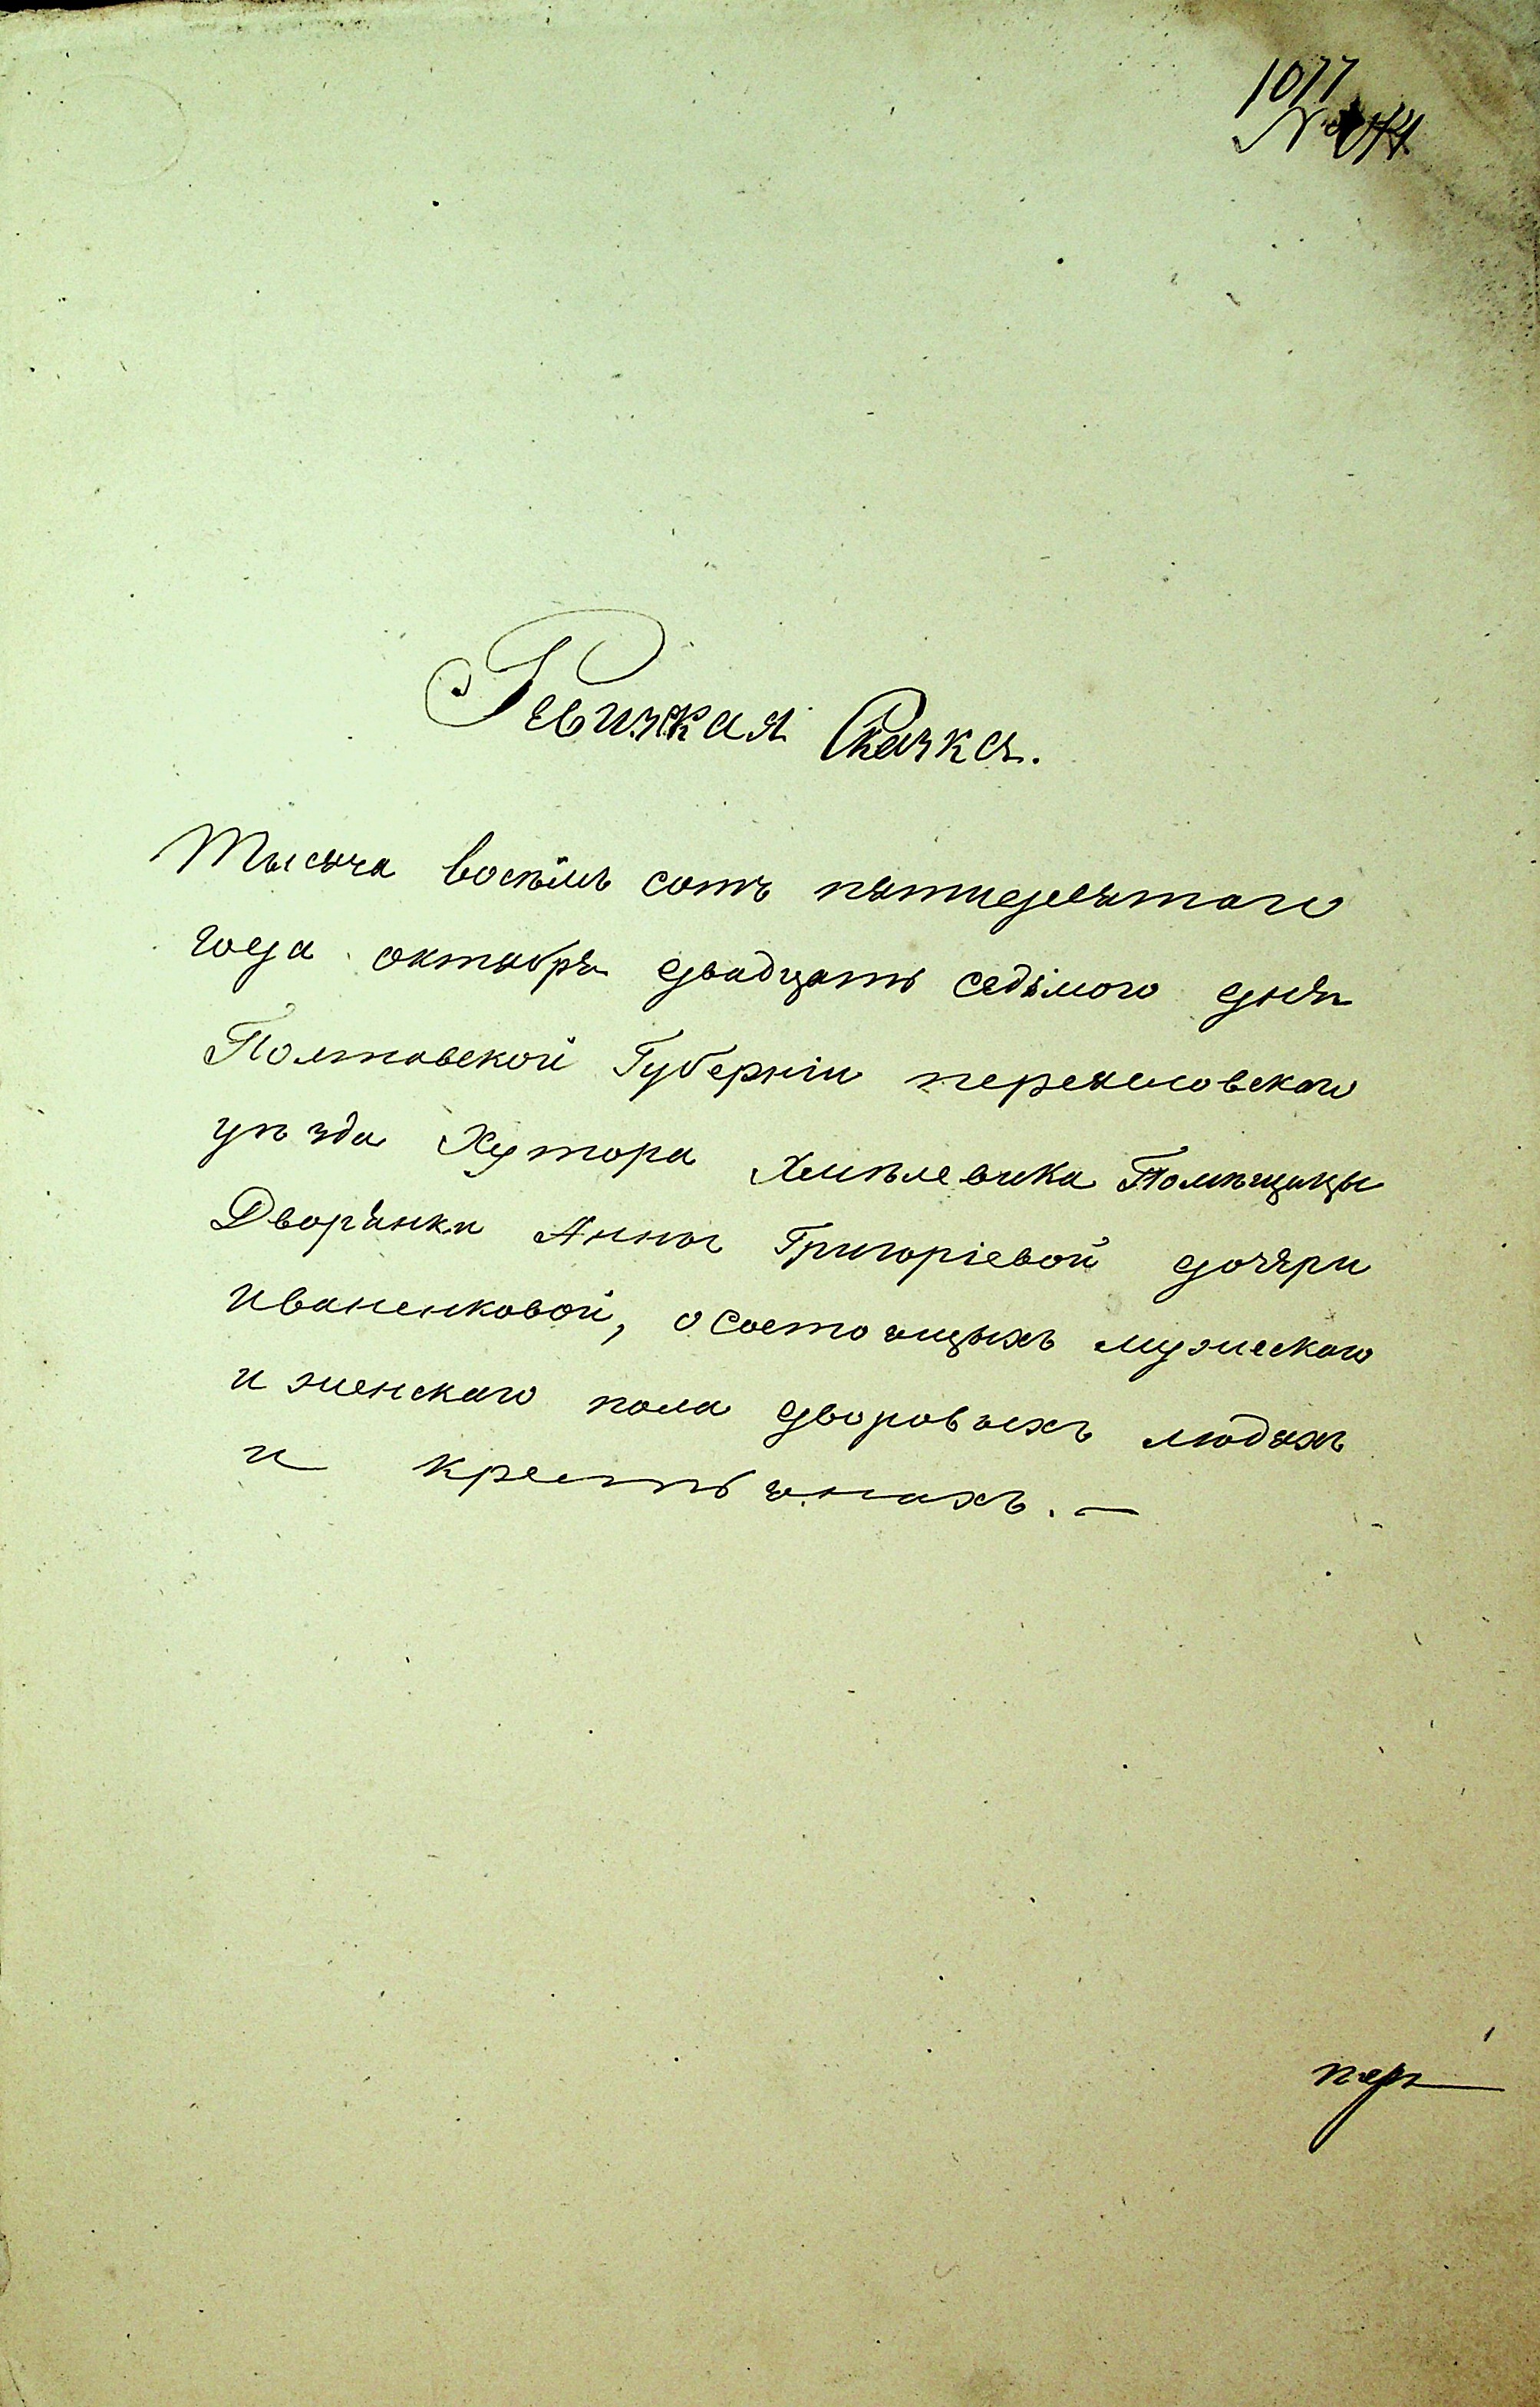 1077
№
Ревизкая Сказка.
Тысяча восѣмь сотъ пятидесятаго
года октября двадцать седьмого дня
Полтавской Губерніи переяславского
уѣзда Хутора Хмѣлевика Помѣщицы
Дворянки Анны Григоріевой дочери
Иваненковой, о состоящихъ мужескаго
и женскаго пола дворовыхъ людяхъ
и крестьянахъ. —